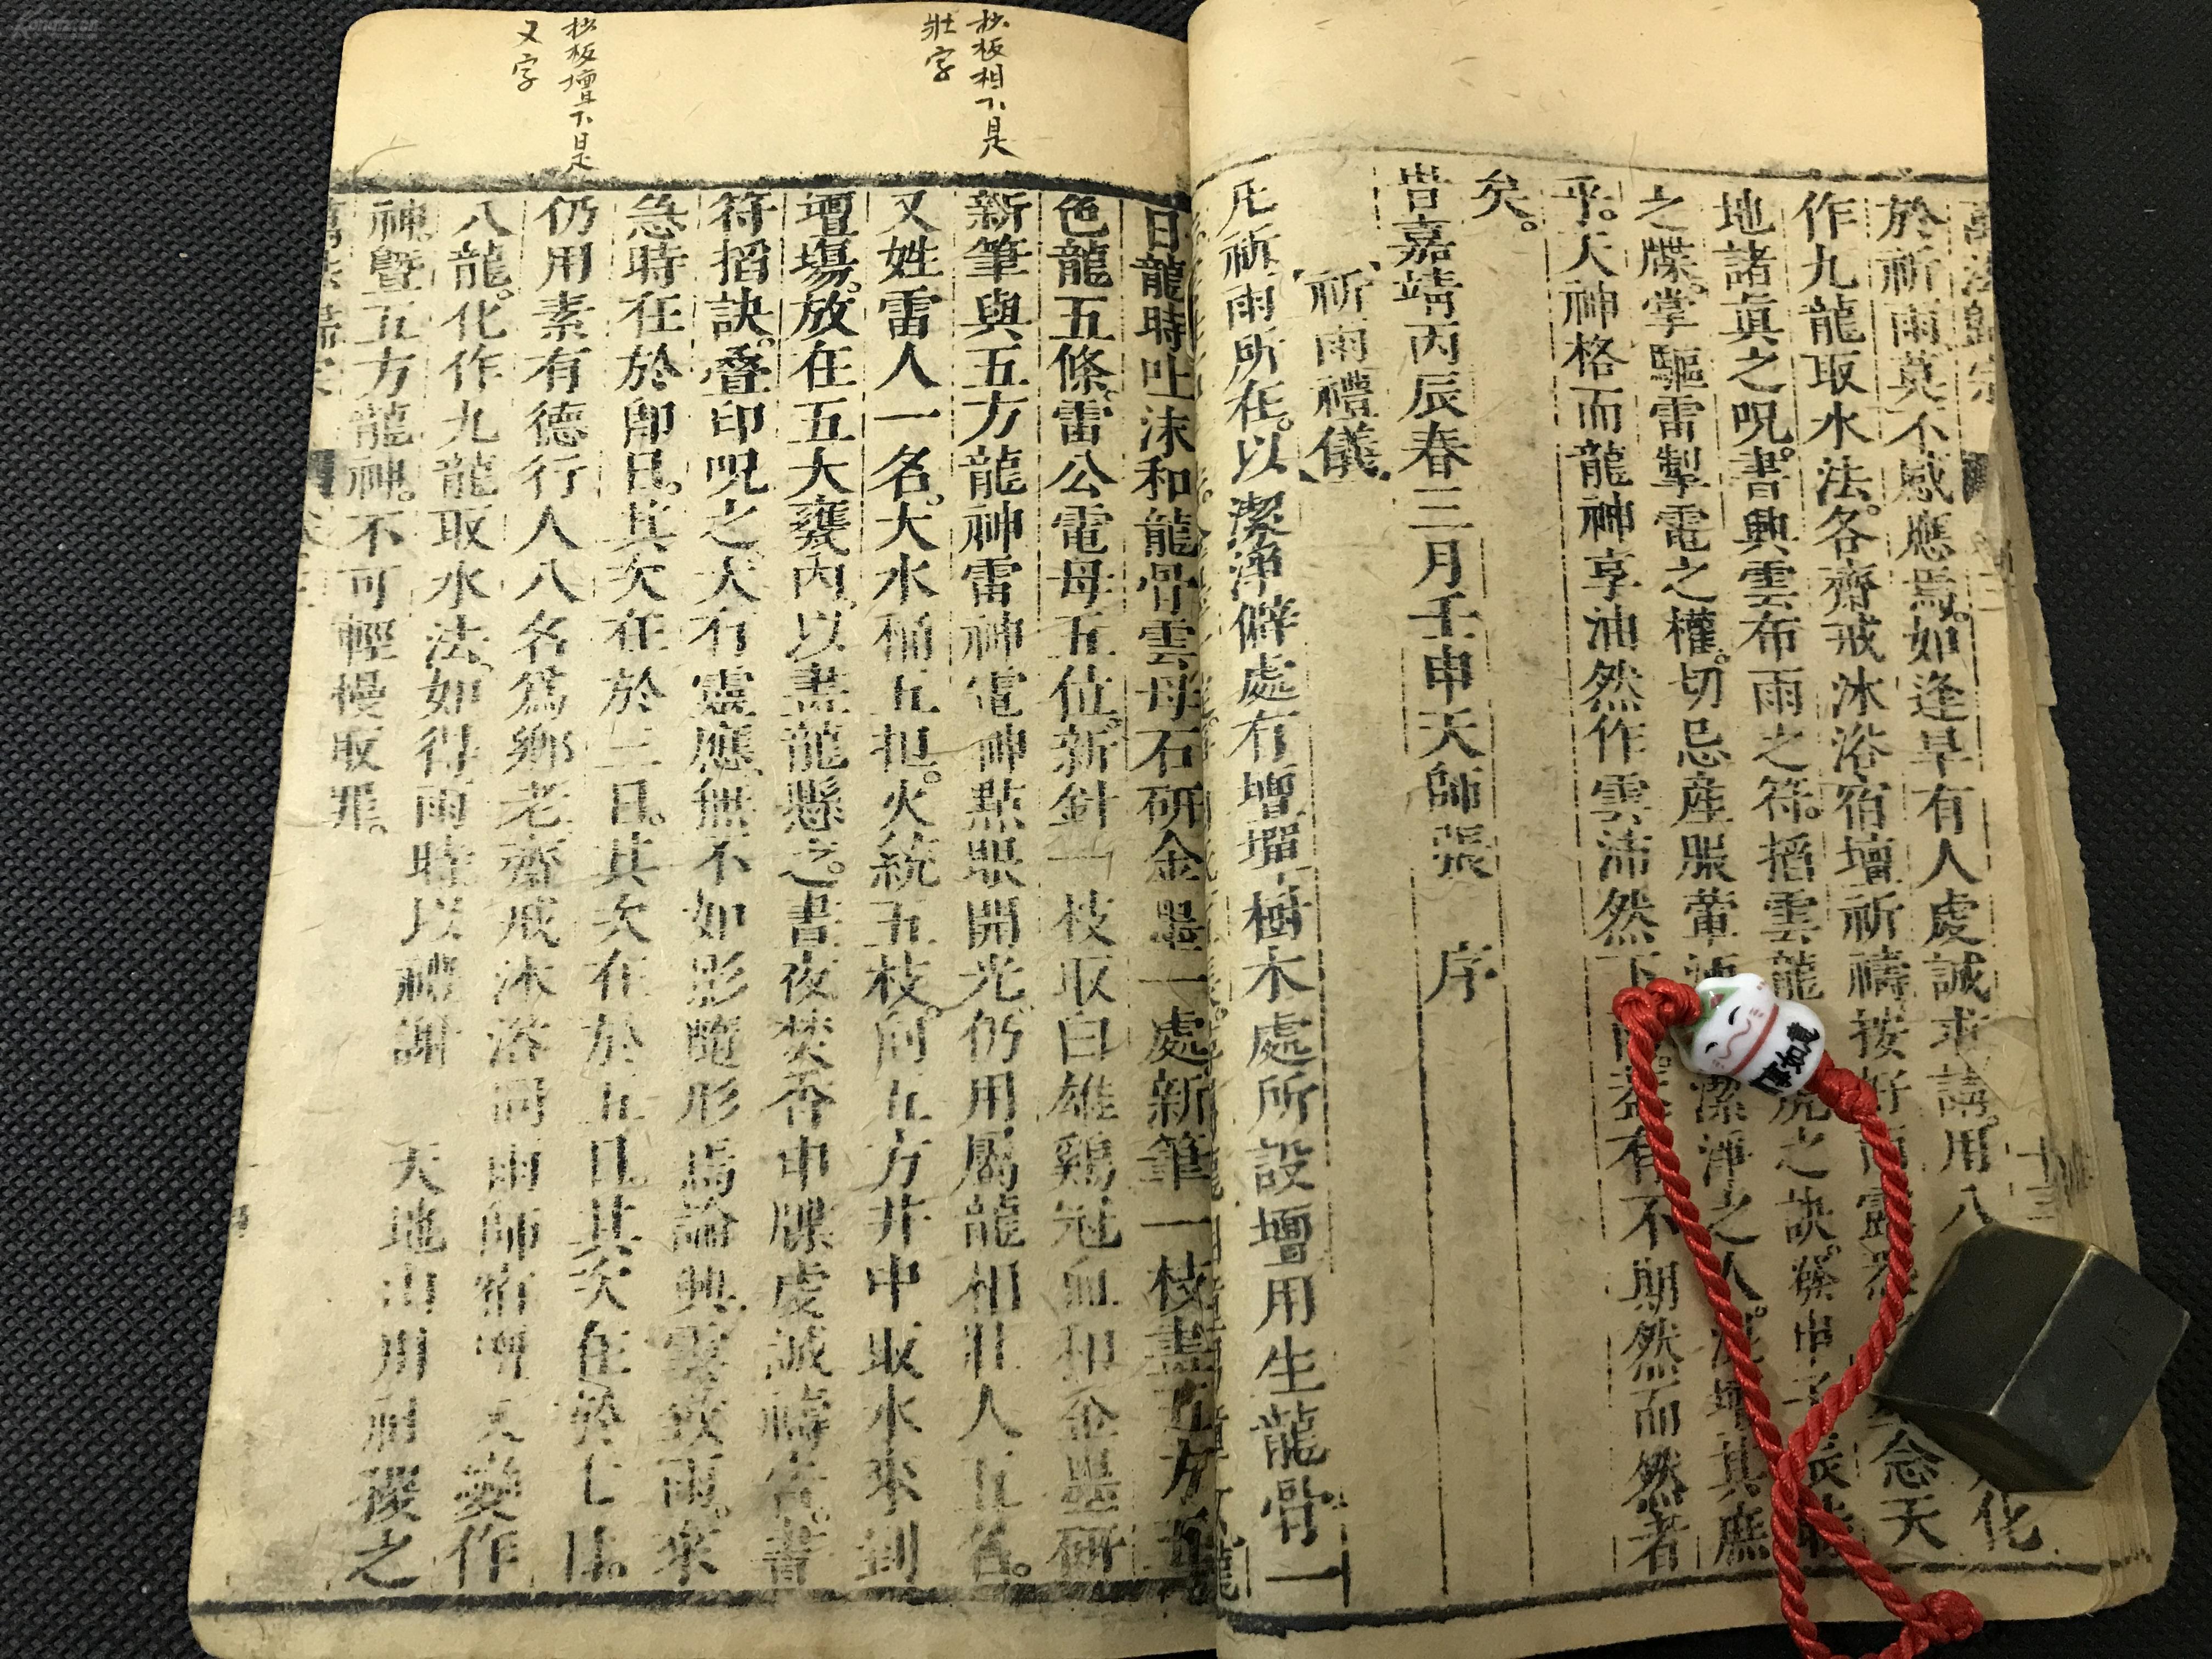 於祈雨莫不感應焉。如逢旱有人處誠求請。用八
化
作九龍取水法。各齋戒沐浴宿壇祈禱。按祈雨靈
念天
地諸眞之呪。書興雲布雨之符。搯雲龍
之訣。
之牒。掌驅雷掣電之權。切忌産服葷酒
潔淨之人。
其庶
乎。天神格而龍神享油然作雲沛然下
有不期然而然者
矣。
旹嘉靖丙辰春三月壬申天師張 序
祈雨禮儀
凡祈雨所在。以潔淨僻處有壇墠樹木處所設壇用生龍骨一
日龍時吐沫和龍骨雲母石研金墨一處新筆一枝畫五方五
色龍五條。雷公電母五位。新針一枝取白雄鷄冠血和金墨研
新筆與五方龍神雷神電神㸃眼開光。仍用屬龍相壯人五名。
又姓雷人一名。大水桶五担。火統五枝。向五方井中取水來到
壇塲。放在五大甕內。以畫龍懸之。晝夜焚香申牒虔誠禱告。書
符搯訣。叠印呪之。大有靈應。無不如影隨形焉論興雲致雨。來
急時在於卽日。其次在於三日。其次在於五日。其次在於七日。
仍用素有德行人八名爲鄉老齋戒沐浴同雨師宿壇
變作
八龍。化作九龍取水法。如得雨時以禮謝 天地山川社稷之
神。曁五方龍神。不可輕慢取罪。
抄板相下是
壯字
抄板壇下是
又字